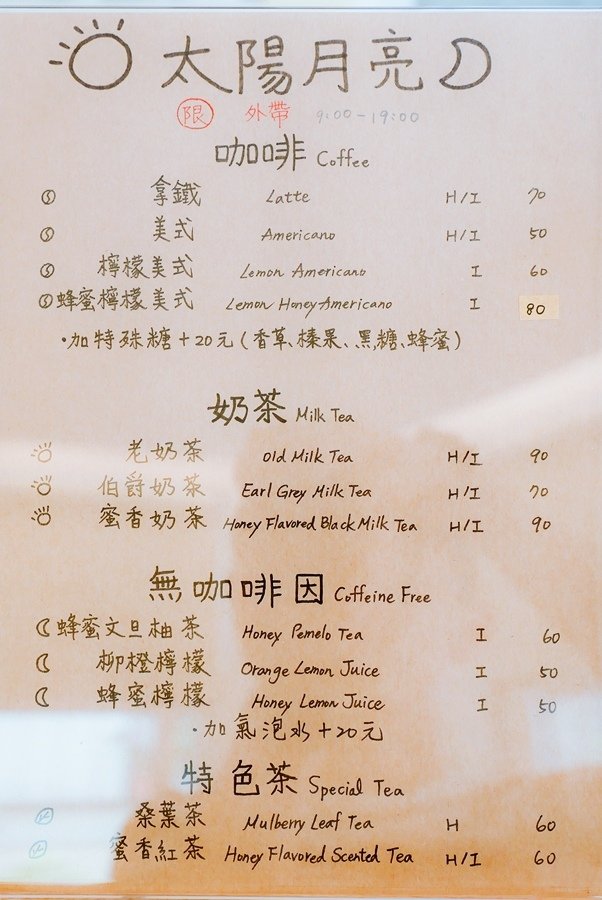 太陽月亮
限 外帶 9:00-19:00
咖啡 Coffee
拿鐵 Latte H/I 70
美式 Americano H/I 50
檸檬美式 Lemon Americano I 60
蜂蜜檸檬美式 Lemon Honey Americano I 80
·加特殊糖+20元(香草、榛果、黑糖、蜂蜜)
奶茶 Milk Tea
老奶茶 Old Milk Tea H/I 90
伯爵奶茶 Earl Grey Milk Tea H/I 70
蜜香奶茶 Honey Flavored Black Milk Tea H/I 90
無咖啡因 Coffeine Free
蜂蜜文旦柚茶 Honey Pemelo Tea I 60
柳橙檸檬 Orange Lemon Juice I 50
蜂蜜檸檬 Honey Lemon Juice I 50
·加氣泡水+20元
特色茶 Special Tea
桑葉茶 Mulberry Leaf Tea H 60
蜜香紅茶 Honey Flavored Scented Tea H/I 60